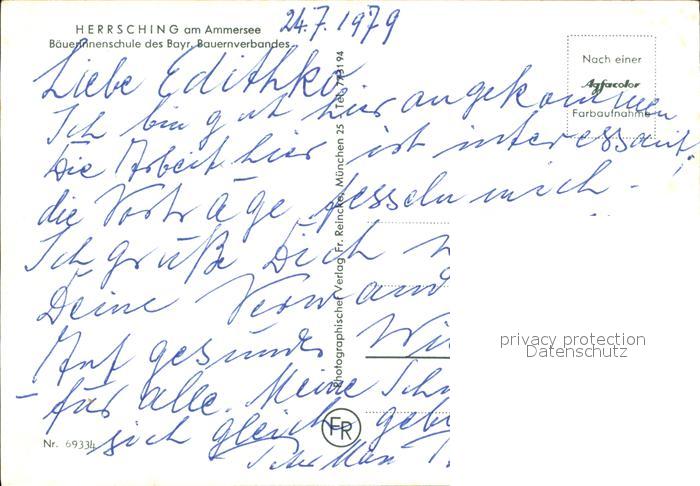 24.7.1979
HERRSCHING am Ammersee
Bäuerinnenschule des Bayr. Bauernverbandes
Liebe Edithko
Ich bin gut hier angekommen
Die Arbeit hier ist interessant,
die Vorträge fesseln mich -
Ich grüße Dich
Deine Verwand
Auf gesundes Wi
- für alle. Meine Schw
sich gleich geb
Nach einer
Agfacolor
Farbaufnahme
Photographischer Verlag Fr. Reincke, München 25 Tel. 773194
FR
Nr. 69334
privacy protection
Datenschutz